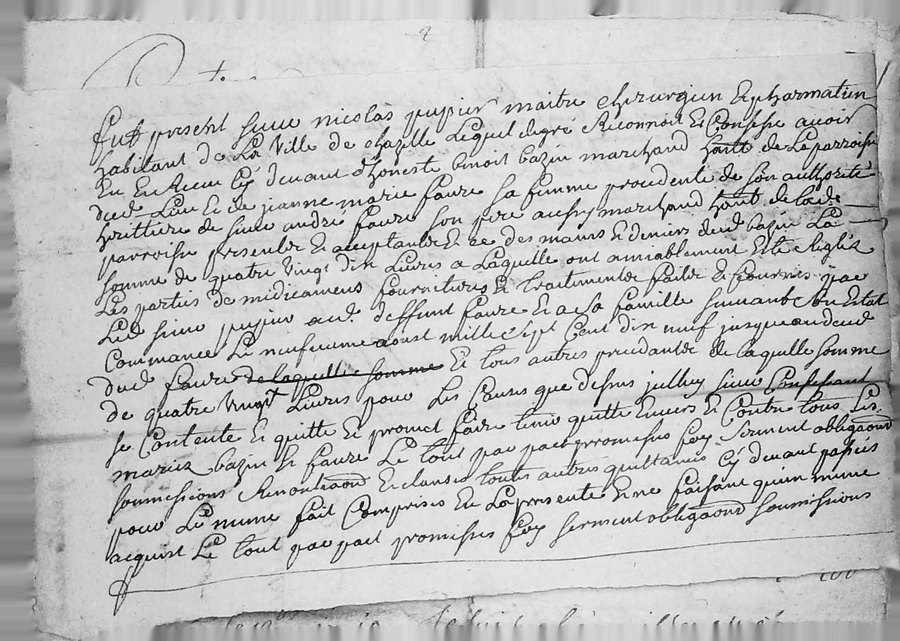 fut present sieur nicolas pupier maitre chirurgien Et pharmatien
habitant de La Ville de chazelle Lequel de gré Reconnoit Et Confesse avoir
Eu Et Receu Cy devant d'honeste benoit bazin marchand hant de La parroisse
dud. Lieu Et de jeanne marie faure sa femme procedente de son authorité
herittiere de sieur andré faure son pere aussy marchand hant de lad.
parroisse presente Et acceptante Et ce des mains Et deniers dud bazin La
somme de quatre Vingt dix Livres a Laquelle ont amiablement Esté Reglés
Les parties de medicamens fournitures Et traitements faits Et fournis par
Led sieur pupier aud. deffunt faure Et a sa famille suivant son Estat
Commancé Le neufvieme aoust mille sept Cent dix neuf jusques au deud
dud faure de laquelle somme Et tous autres precedants de laquelle somme
de quatre Vingt Livres pour Les Causes que dessus jelluy sieur Confessant
se Contente Et quitte Et promet faire tenir quitte Envers Et Contre tous Les
mariez bazin Et faure Le tout par pact promesses foy serment obligaons
soumissions Renontiaons Et clauses toutes autres quittances Cy devant passés
pour Le meme fait Comprises En La presente Et ne faisant qu'un meme
acquist Le tout par pact promesses foy serment obligaons soumissions